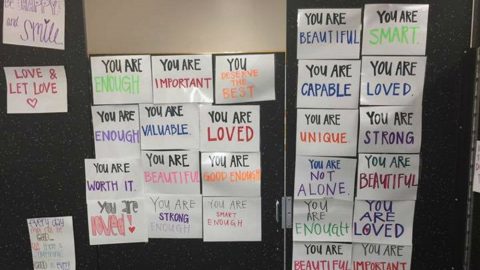 BE HAPPY
and
Smile
LOVE &
LET LOVE
every day
YOU ARE
ENOUGH
YOU ARE
IMPORTANT
YOU
DESERVE THE
BEST
YOU ARE
ENOUGH
YOU ARE
VALUABLE.
YOU ARE
LOVED
YOU ARE
WORTH IT.
YOU ARE
BEAUTIFUL
YOU ARE
GOOD ENOUGH
you are
loved!
YOU ARE
STRONG
ENOUGH
YOU ARE
SMART
ENOUGH
YOU ARE
BEAUTIFUL
YOU ARE
SMART.
YOU ARE
CAPABLE
YOU ARE
LOVED.
YOU ARE
UNIQUE.
YOU ARE
STRONG
YOU ARE
NOT
ALONE.
YOU ARE
BEAUTIFUL
YOU ARE
ENOUGH
YOU ARE
LOVED
YOU ARE
BEAUTIFUL
YOU ARE
IMPORTANT